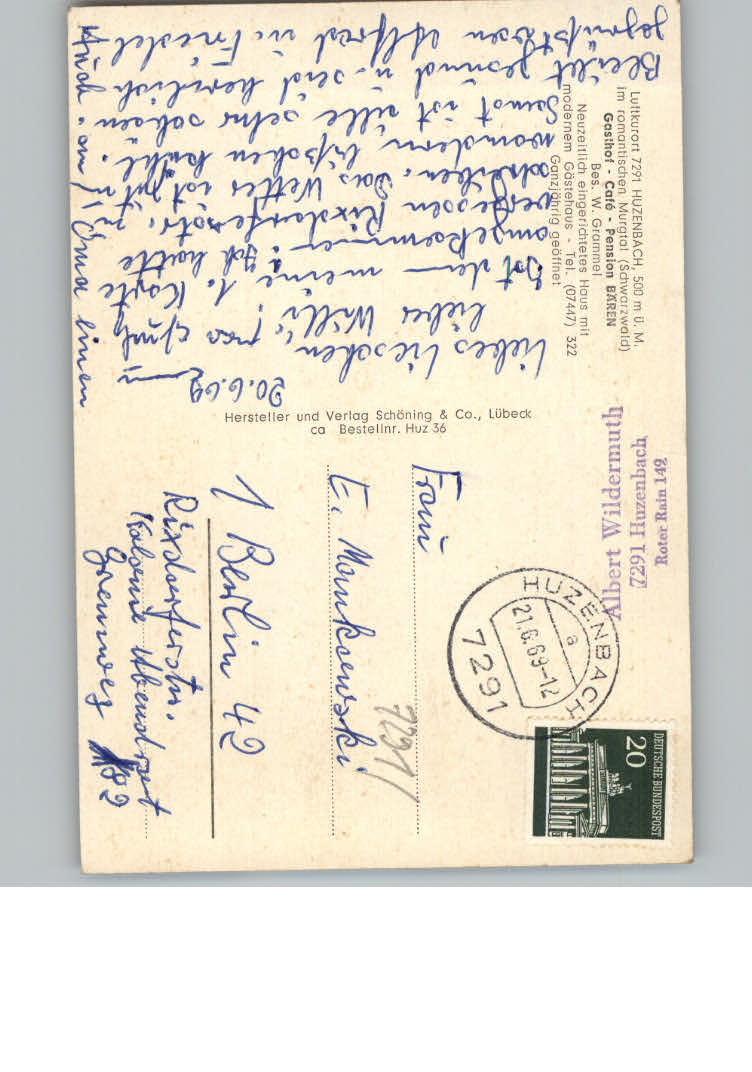 Luftkurort 7291 HUZENBACH, 500 m ü. M.
im romantischen Murgtal (Schwarzwald)
Gasthof - Café - Pension BÄREN
Bes. W. Grammel
Neuzeitlich eingerichtetes Haus mit
modernem Gästehaus - Tel. (07447) 322
Ganzjährig geöffnet
20.6.69
Liebes Lieschen
lieber Willi,
Ist denn meine 1. Karte
angekommen. Ich hatte
vergessen Rixdorferstr. zu
schreiben. Das Wetter ist gut zum
wandern bißchen kühl.
Sonst ist alle sehr schön
Bleibet gesund u. seid herzlich
gegrüßt von Alfred u. Friedel
Auch an Oma einen
Gruß
Hersteller und Verlag Schöning & Co., Lübeck
ca Bestellnr. Huz 36
Albert Wildermuth
7291 Huzenbach
Roter Rain 142
HUZENBACH
a
21.6.69-12
7291
DEUTSCHE BUNDESPOST
20
Frau
E. Manksewski
7291/
1 Berlin 42
Rixdorferstr.
Kolonie Abendrot
Grenzweg 82